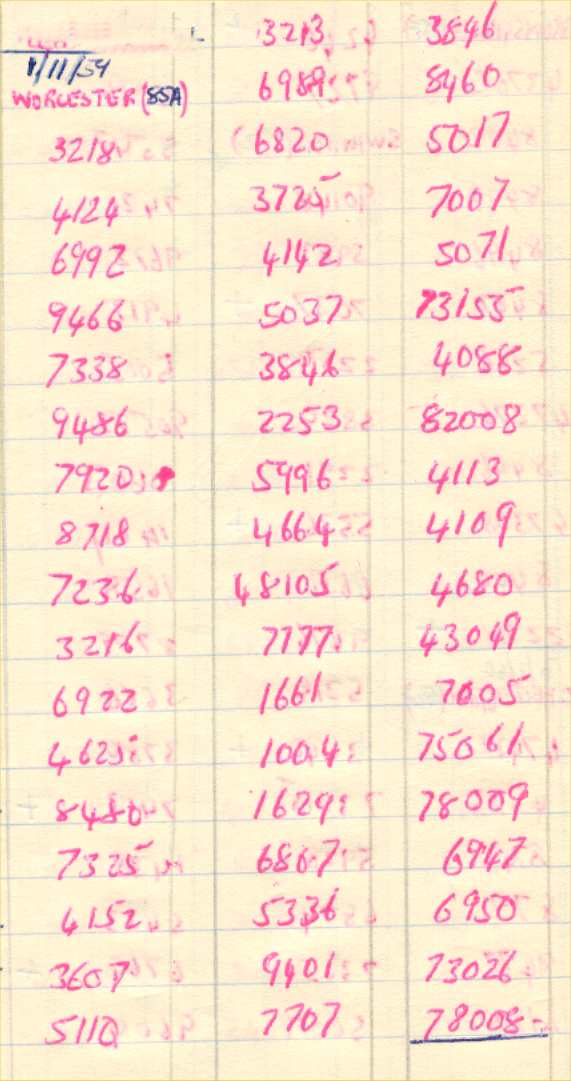 1/11/59
WORCESTER (85A)
3218
4124
6992
9466
7338
9486
7920
8718
7236
3216
6922
4625
8480
7325
4152
3607
5110
3213
6989
6820
3725
4142
5037
3846
2253
5996
4664
48105
7777
1661
1004
1629
6867
5336
9401
7707
3846
8460
5017
7007
5071
73155
4088
82008
4113
4109
4680
43049
7005
75061
78009
6947
6950
73026
78008